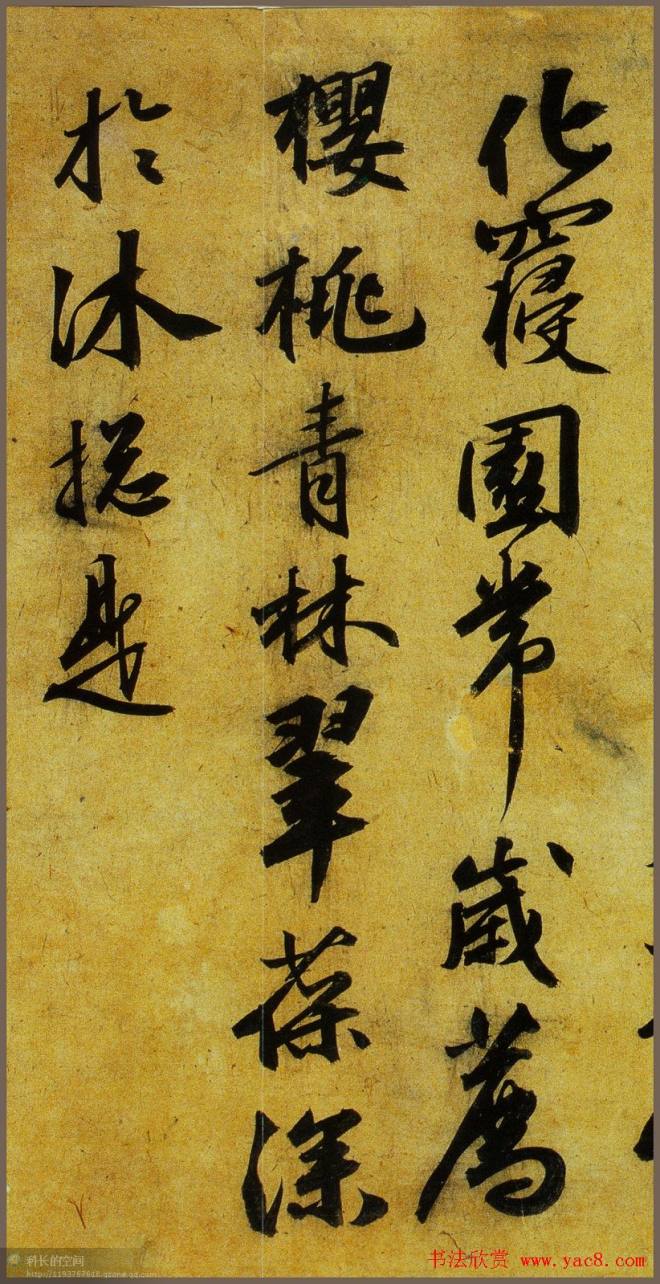 化寢園常歲薦
櫻桃青林翠葆深
於沐揔是
科长的空间
书法欣赏 www.yac8.com